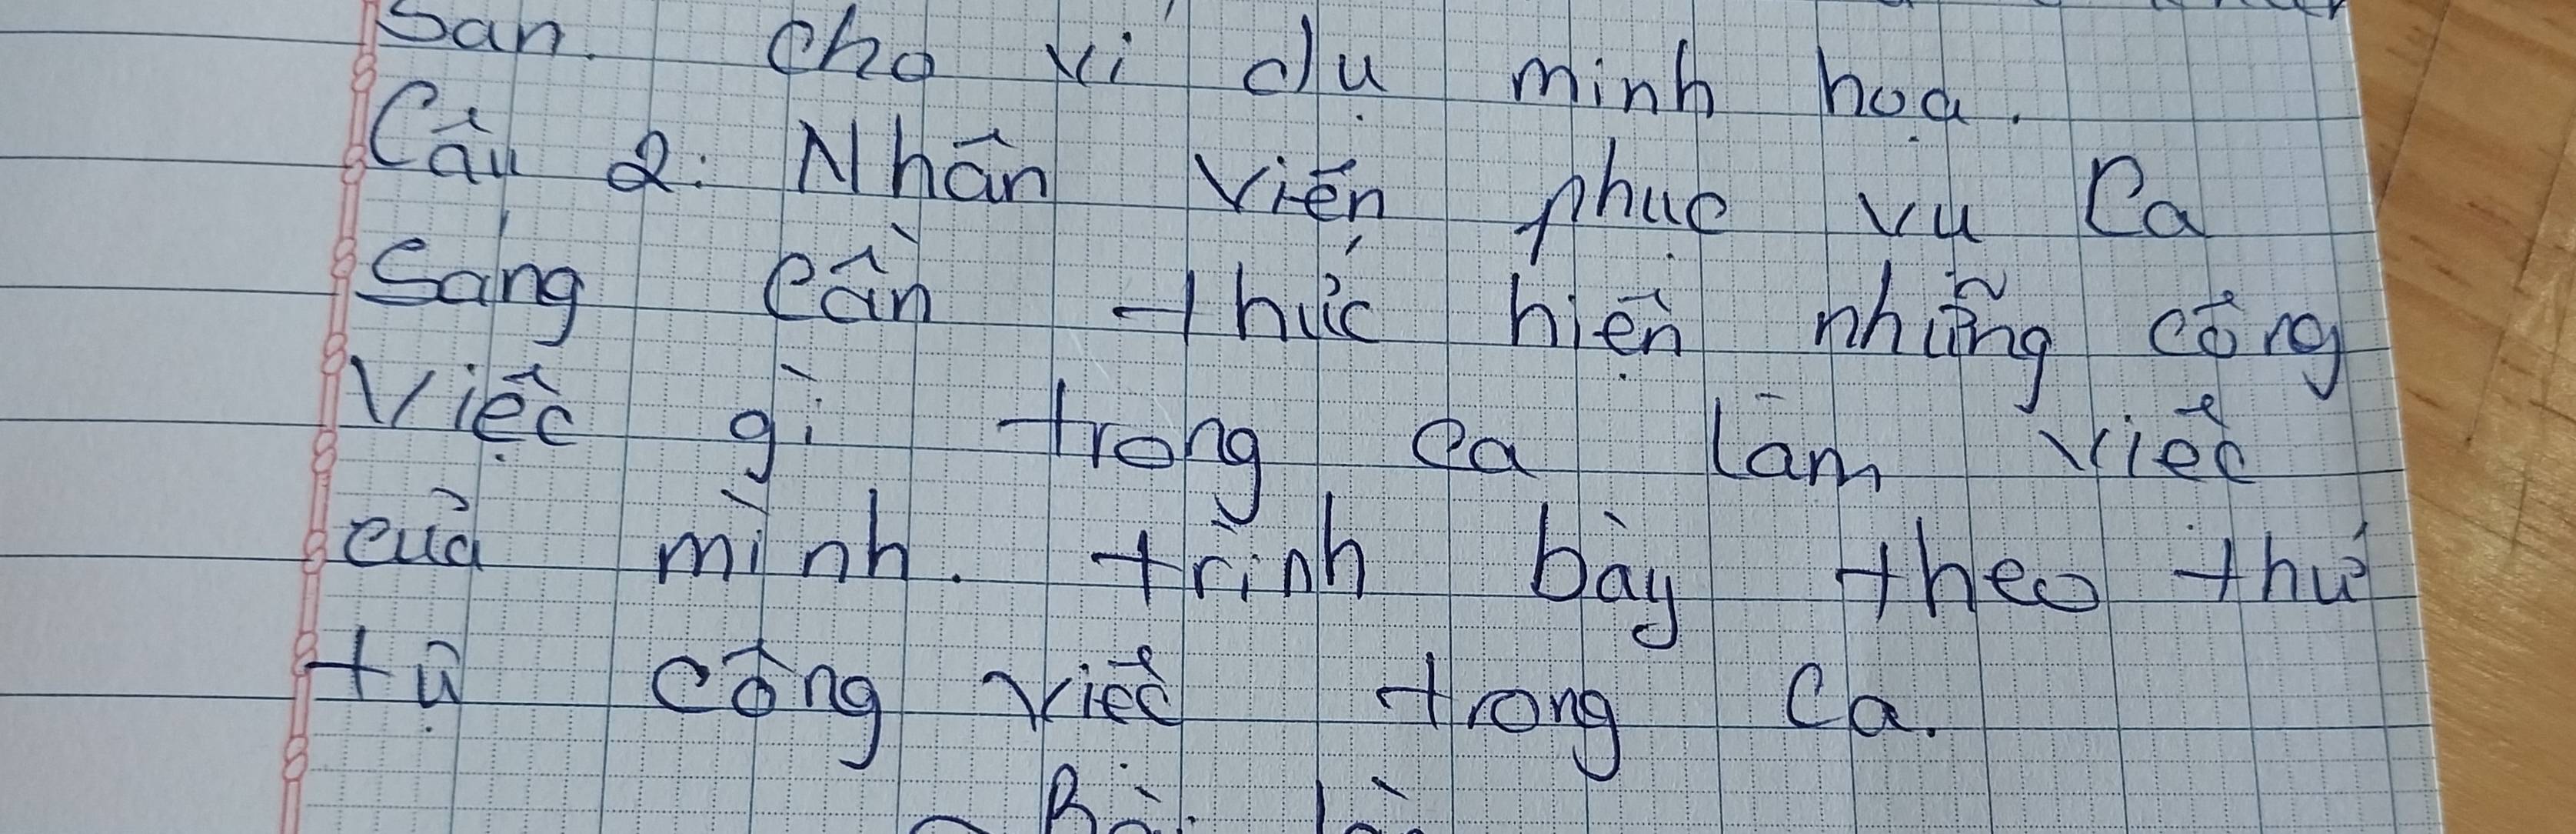 San. cho ví dụ minh hoạ.
Câu 2: Nhân viên phục vụ ca
Sáng cần thực hiện những công
Việc gì trong ca làm việc
của mình. trình bày theo thứ
tự công việc trong ca.
Bài là